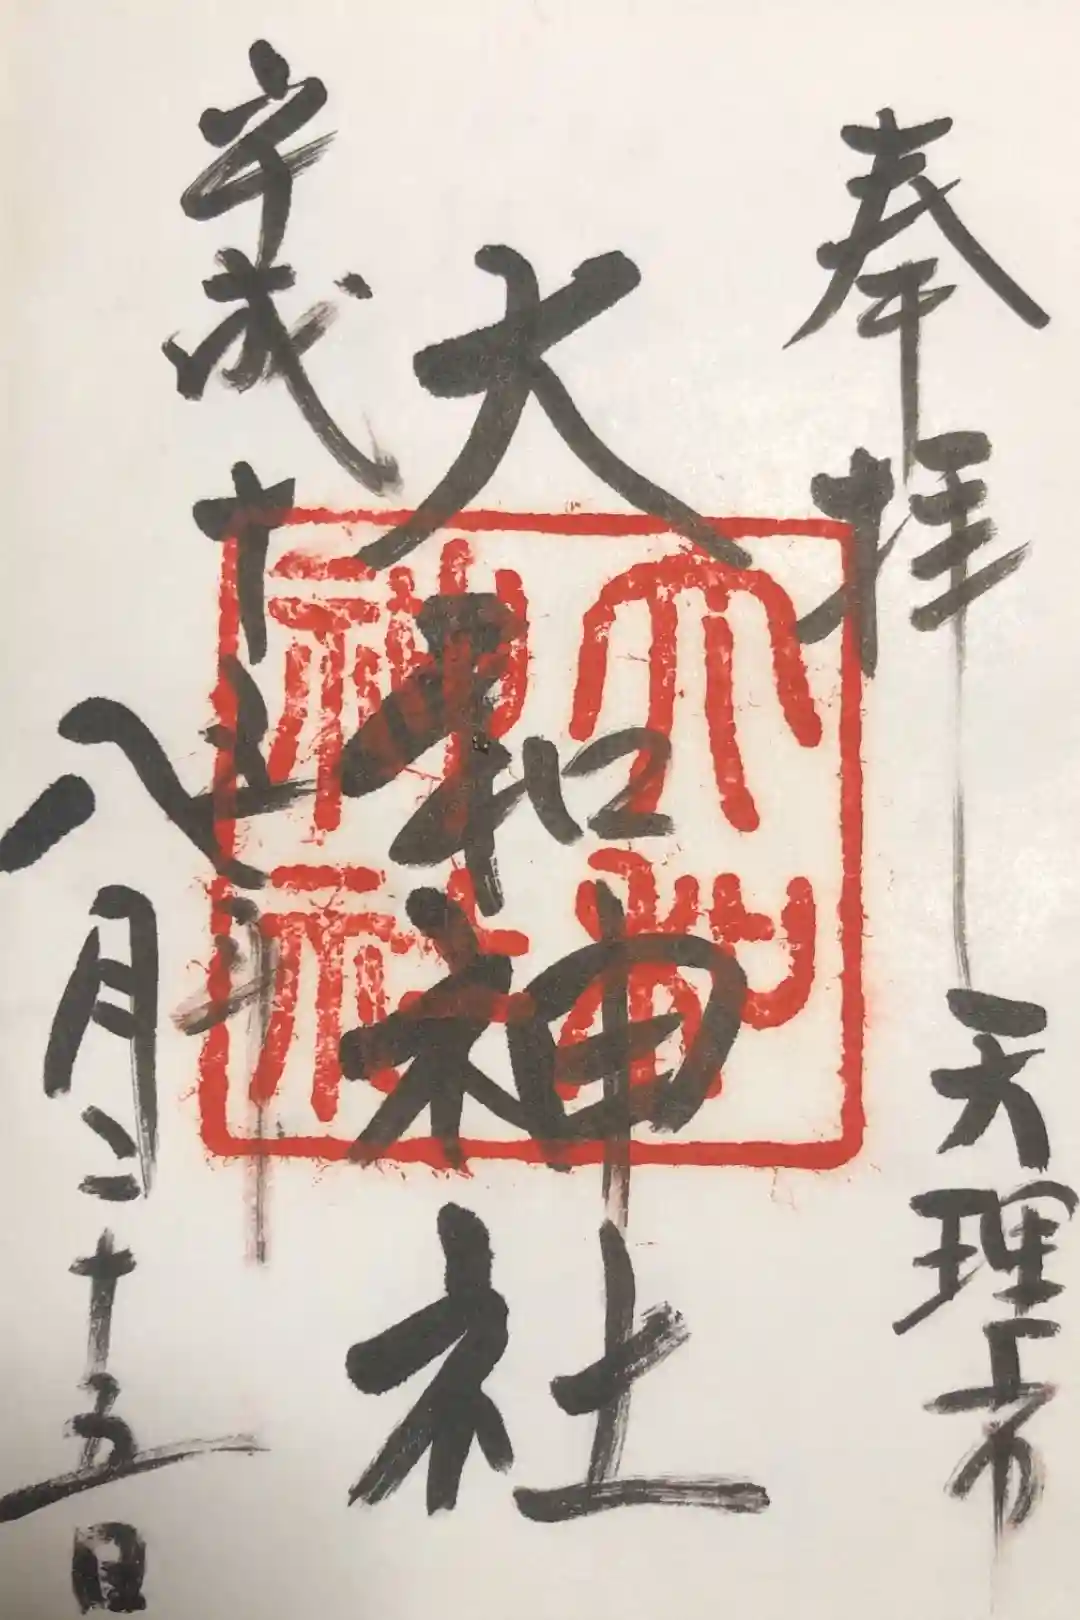 奉拝 天理市
大和神社
大和
神社
平成十年
八月二十五日